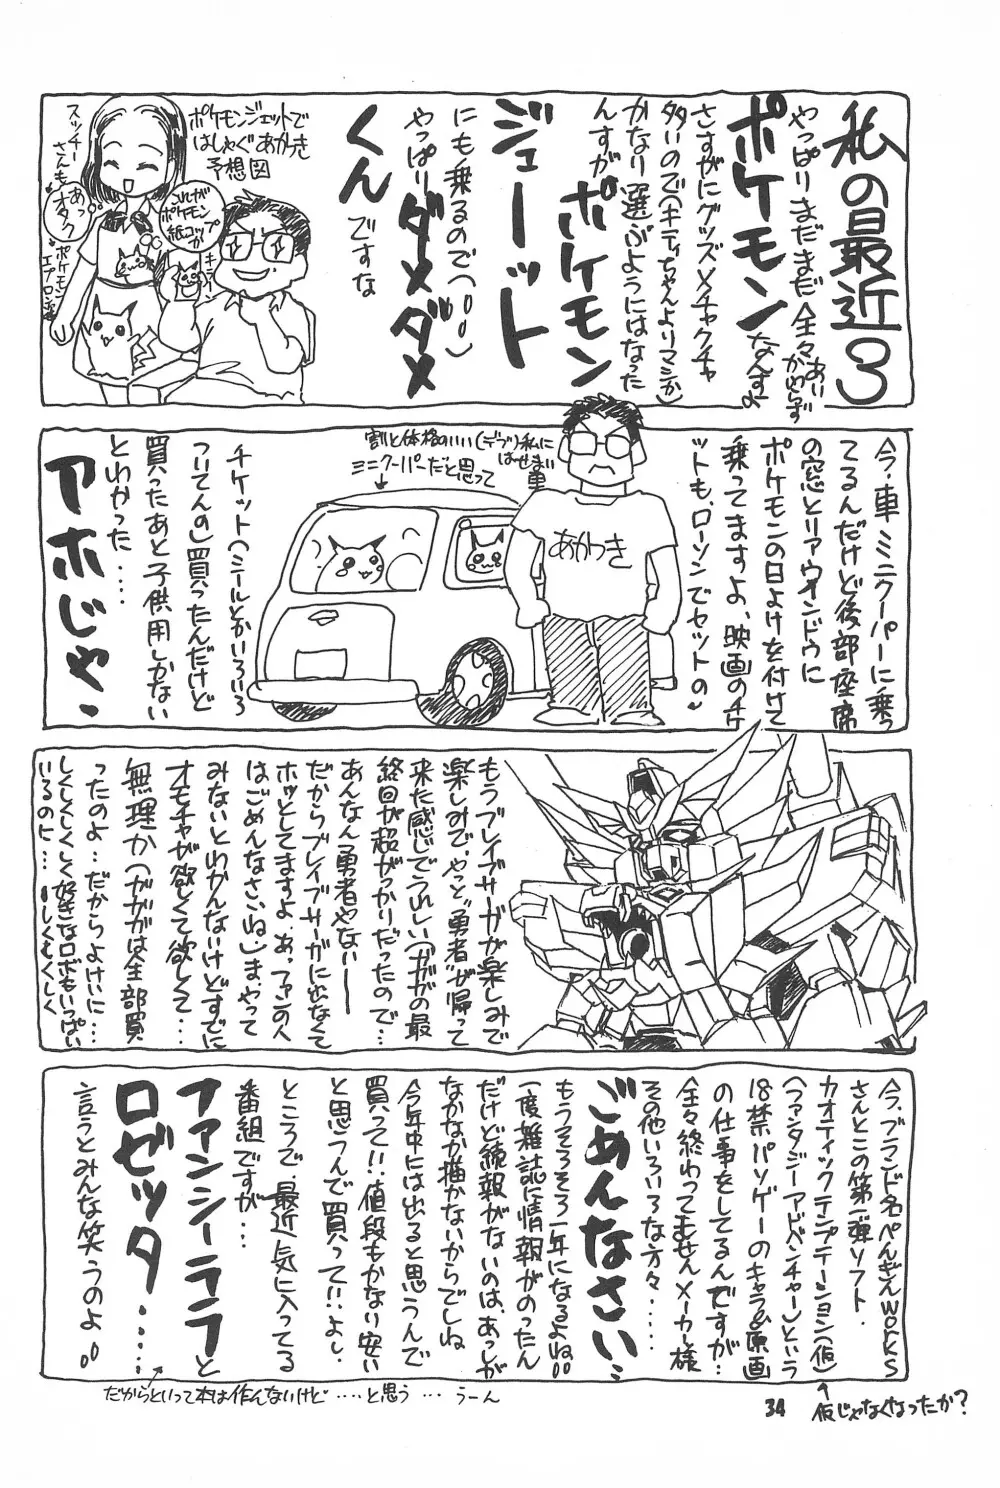 私の最近3
やっぱりまだまだ全々あいかわらず
ポケモンなんすよ
さすがにグッズメチャクチャ
多いので(キティちゃんよりマシか)
かなり選ぶようにはなった
んすが
ポケモン
ジェーット
にも乗るので(^^)
やっぱりダメダメ
くんですな
ポケモンジェットで
はしゃぐあかつき
予想図
コレが
ポケモン
紙コップ
か
キラーン
あっ
オタク
スッチー
さんも
ポケモン
エプロン
今、車ミニクーパーに乗っ
てるんだけど後部座席
の窓とリアウインドウに
ポケモンの日よけを付けて
乗ってますよ、映画のチケ
ットも、ローソンでセットの〜
割と体格のいい(デブ)私に
はせまい
車
ミニクーパーだと思って
あかつき
チケット(シールとかいろいろ
ついてんの)買ったんだけど
買ったあと子供用しかない
とわかった....
アホじゃ、
もうブレイブサーガが楽しみで
楽しみで、やっと“勇者”が帰って
来た感じでうれしい(ガガガの最
終回が超がっかりだったので…
あんなん勇者やないーー
だからブレイブサーガに出なくて
ホッとしてますよ、あっファンの人
はごめんなさいね)ま、やって
みないとわかんないけどすでに
オモチャが欲しくて欲しくて…
無理か(ガガガは全部買
ったのよ…だからよけいに…
しくしくしく好きなロボもいっぱい
いるのに…しくしくしく
今、ブランド名ぺんぎんworks
さんとこの第一弾ソフト
カオティックテンプテーション(仮)
(ファンタジーアドベンチャー)という
18禁パソゲーのキャラ&原画
の仕事をしてるんですが…
全々終わってませんメーカー様
その他いろいろな方々....
ごめんなさい…
もうそろそろ一年になるよね^^
一度雑誌に情報がのったん
だけど続報がないのは、あっしが
なかなか描かないからでしね
今年中には出ると思うんで
買って!!値段もかない安い
と思うんで買って!!よし
ところで、最近気に入ってる
番組ですが…
ファンシーララと
ロゼッタ....
言うとみんな笑うのよ^^
だからといって本は作んないけど....と思う…うーん
34
仮じゃなくなったか?